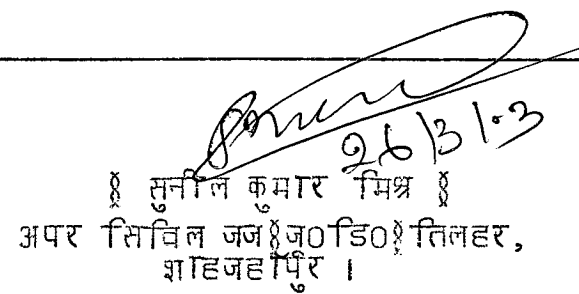 26/3/03
§ सुनील कुमार मिश्र §
अपर सिविल जज§जा0डि0§ तिलहर,
शाहजहाँपुर ।